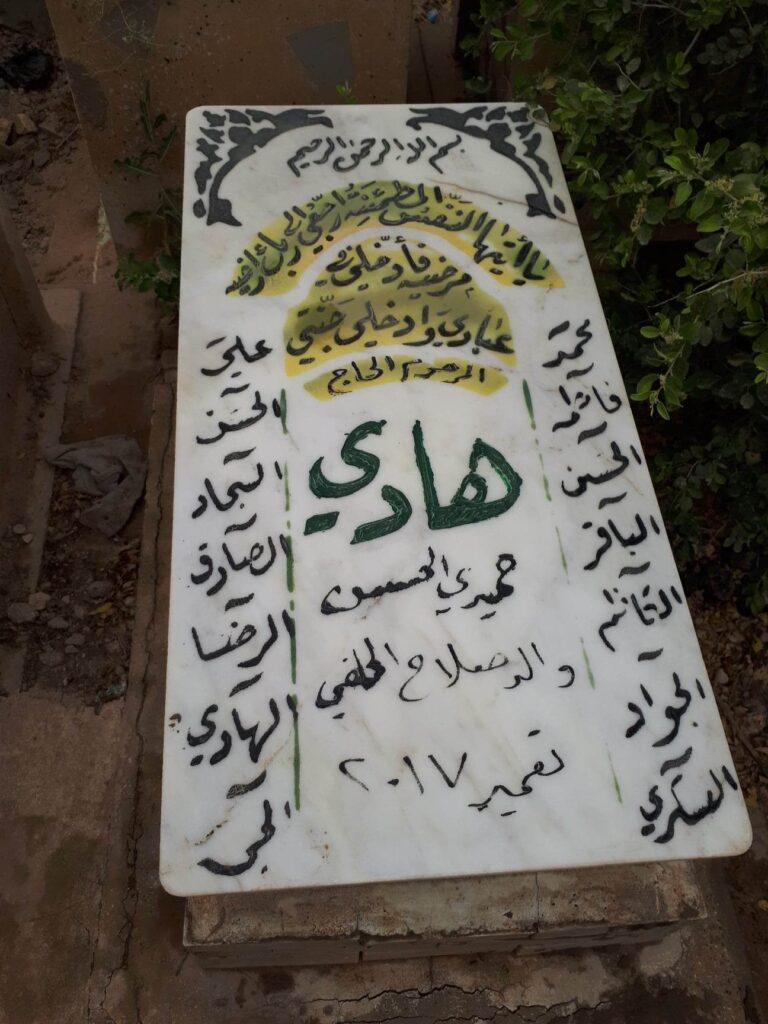 بسم الله الرحمن الرحيم
يا أيتها النفس المطمئنة ارجعي إلى ربك راضية
مرضية فأدخلي في
عبادي وادخلي جنتي
المرحوم الحاج
هادي
حميدي الحسين
والد صلاح الخلفي
تعمير ٢٠١٧
محمد
فاطمة
الحسن
الباقر
الكاظم
الجواد
العسكري
علي
الحسين
السجاد
الصادق
الرضا
الهادي